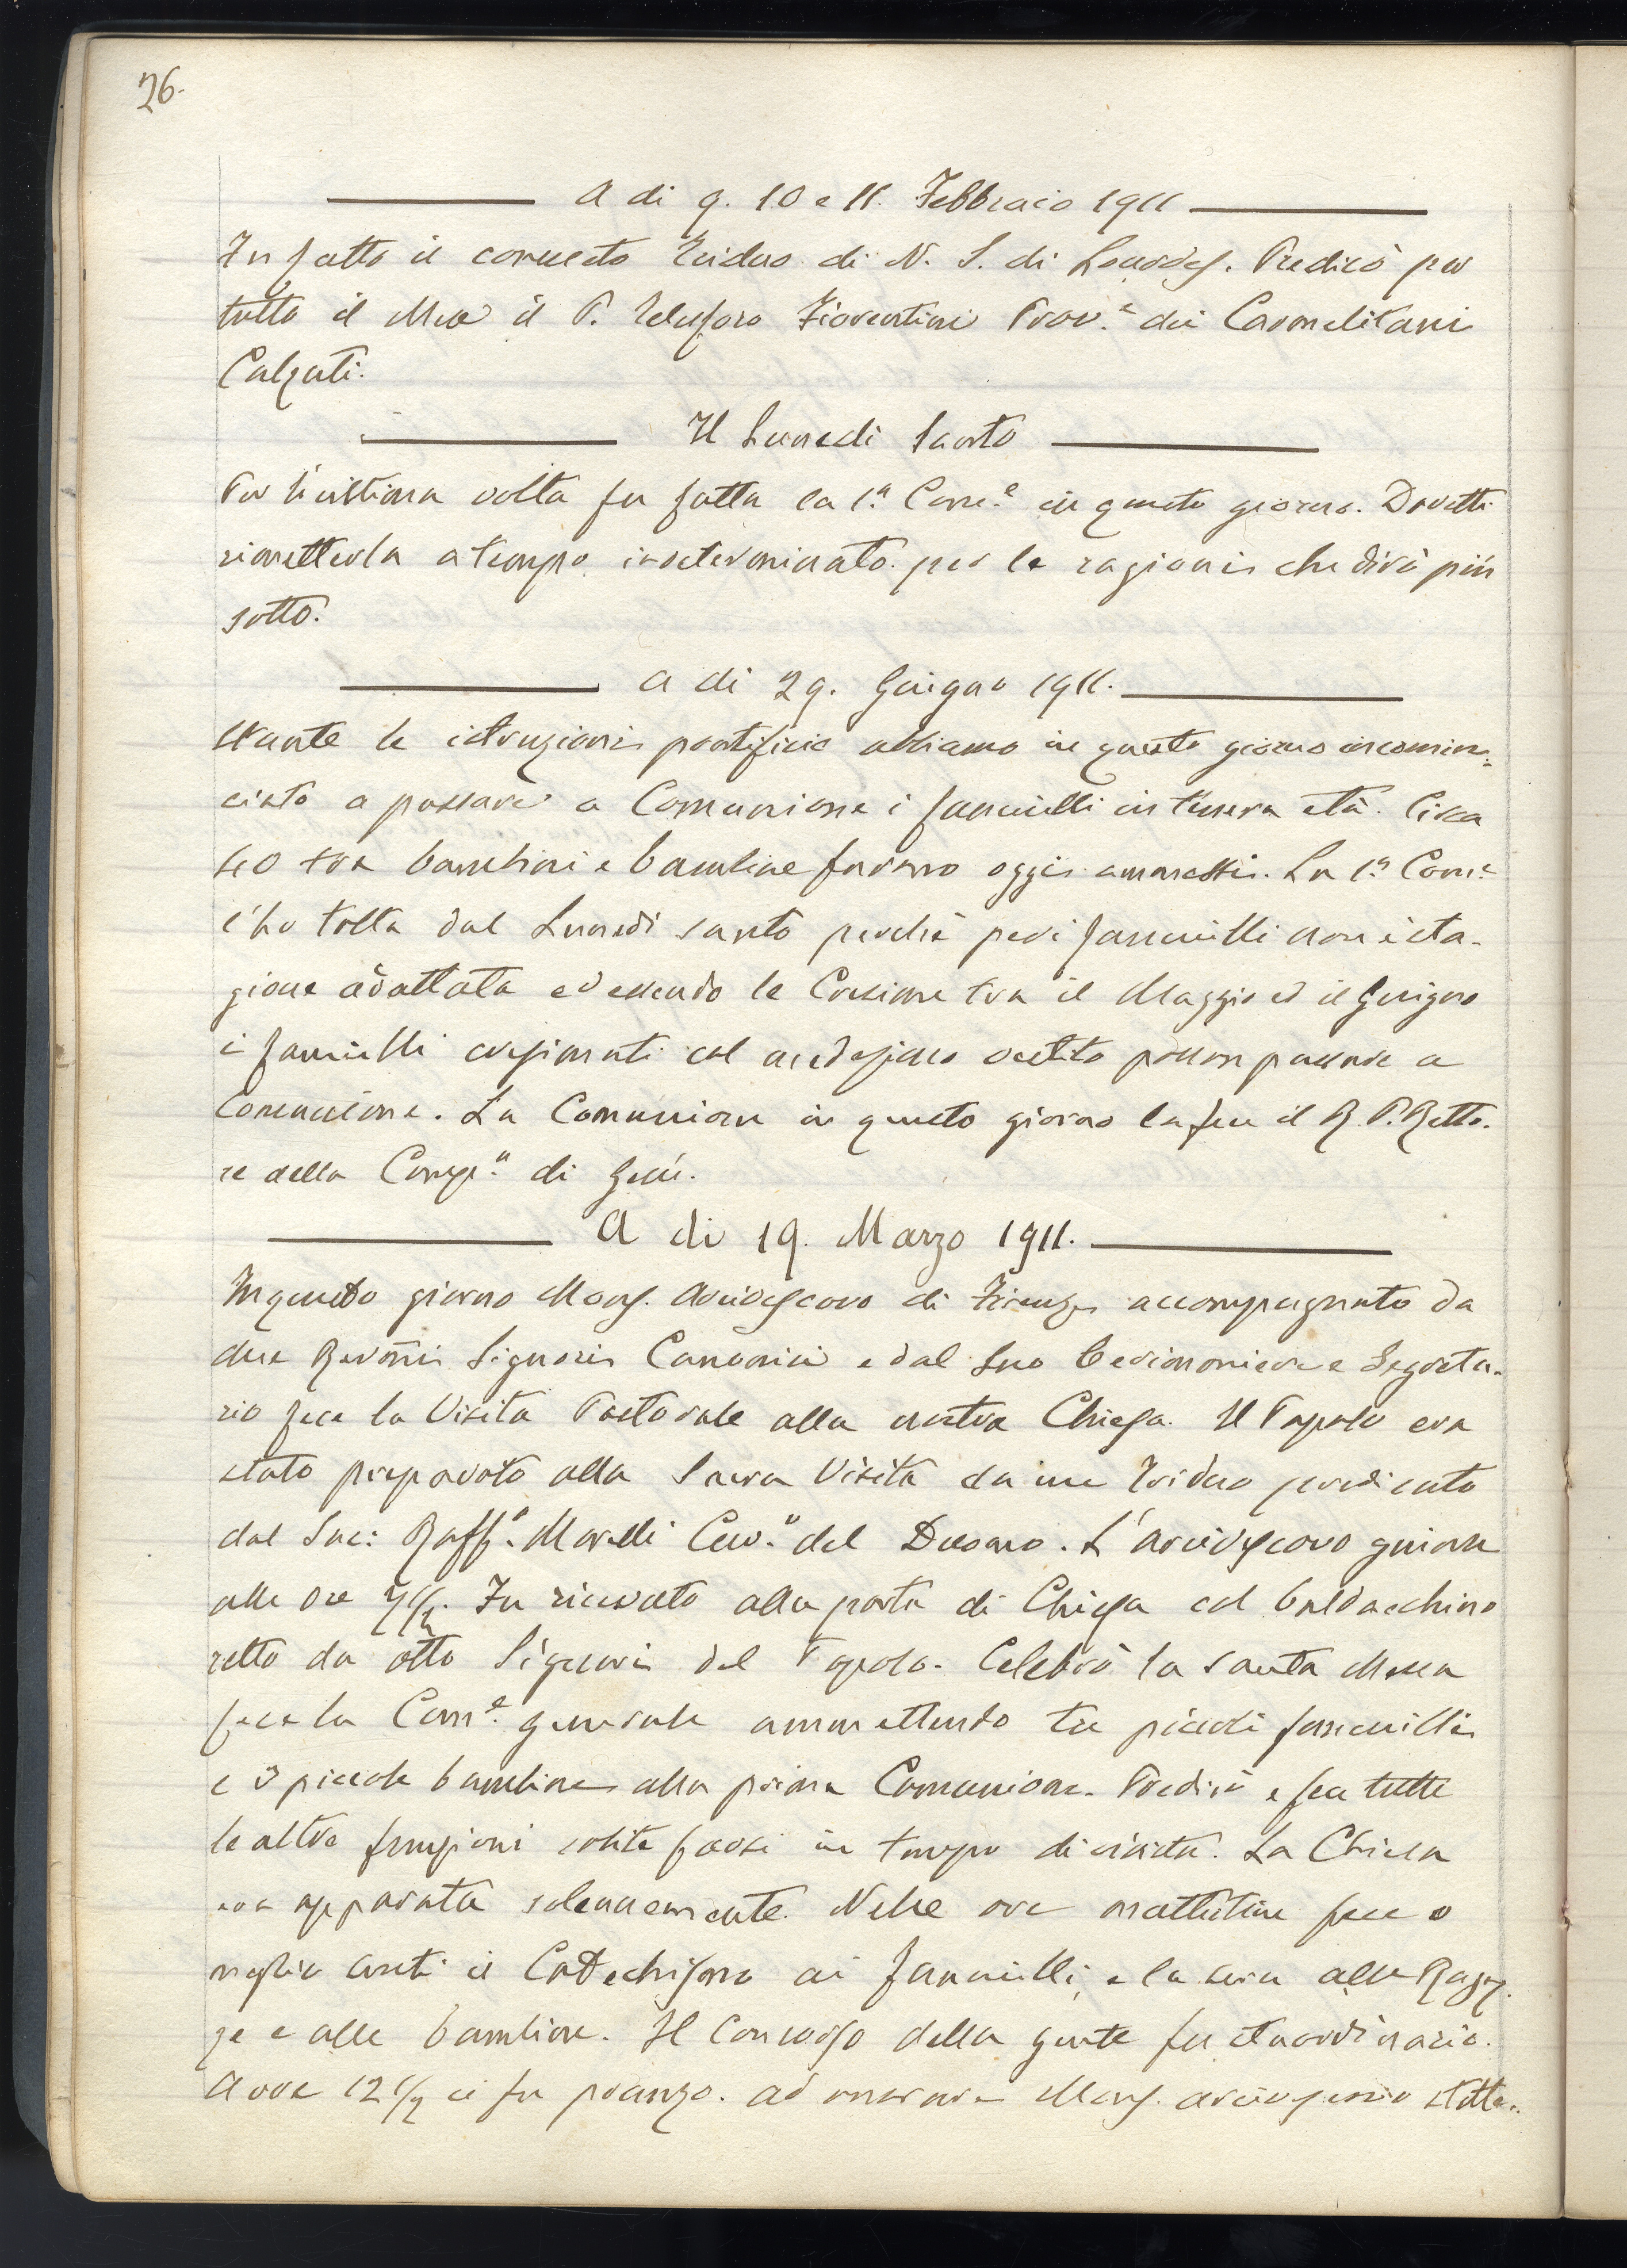 26.
A di 9. 10 e 11. Febbraio 1911
Fu fatto il consueto Triduo di N. S. di Lourdes. Predicò per
tutto il Mese il P. Telesforo Fiorentini Prov.e dei Carmelitani
Calzati.
Il Lunedi Santo
Per l'ultima volta fu fatta la 1.a Com.e in questo giorno. Dovetti
rimetterla a tempo indeterminato per le ragioni che dirò più
sotto.
A di 29. Giugno 1911.
Stante le istruzioni pontificie abbiamo in questo giorno incomin=
ciato a passare a Comunione i fanciulli in tenera età. Circa
40 tra bambini e bambine furono oggi ammessi. La 1.a Com.e
l'ho tolta dal Lunedì santo perchè per i fanciulli non è sta-
gione adattata ed essendo le Cresime tra il Maggio ed il Giugno
i fanciulli cresimati col medesimo vestito posson passare a
Comunione. La Comunione in questo giorno la fece il R. P. Retto-
re della Comp.a di Gesù.
A di 19. Marzo 1911.
In questo giorno Mons. Arcivescovo di Firenze accompagnato da
due Revmi Signori Canonici e dal Suo Cerimoniere e Segreta-
rio fece la Visita Pastorale alla nostra Chiesa. Il Popolo era
stato preparato alla Sacra Visita da un Triduo predicato
dal Sac: Raff.e Morelli Cur.o del Duomo. L'Arcivescovo giunse
alle Ore 7 1/2. Fu ricevuto alla porta di Chiesa col baldacchino
retto da otto Signori del Popolo. Celebrò la Santa Messa
fece la Com.e generale ammettendo tre piccoli fanciulli
e 3 piccole bambine alla prima Comunione. Predicò e fece tutte
le altre funzioni solite farsi in tempo di visita. La Chiesa
era apparata solennemente. Nelle ore mattutine fece o
meglio sentì il Catechismo ai fanciulli, e la sera alle Ragaz
ze e alle bambine. Il concorso della gente fu straordinario.
A ore 12 1/2 ci fu pranzo. Ad onorare Mons. Arcivescovo